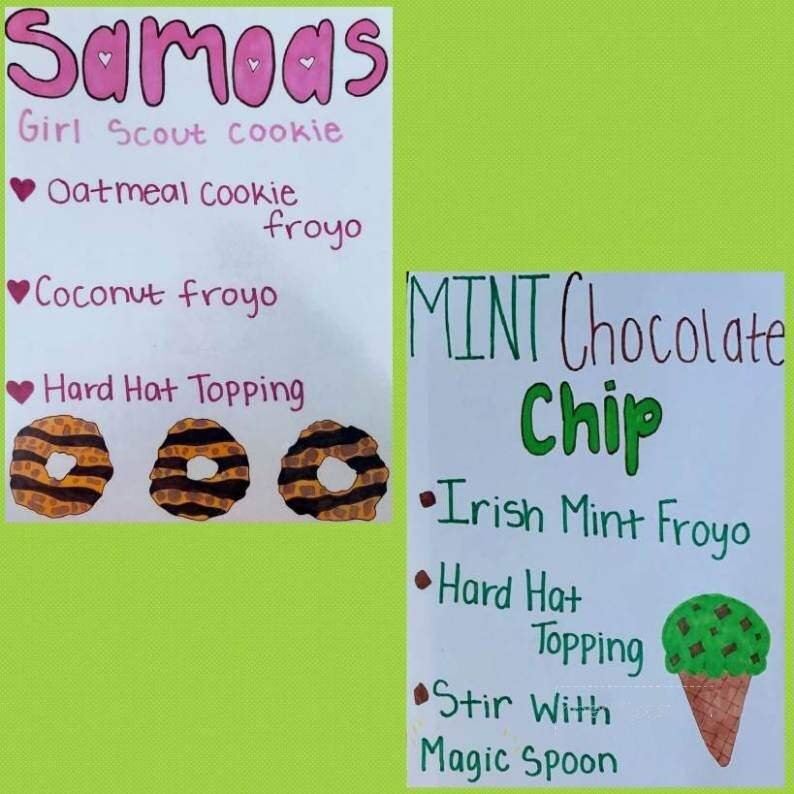 Samoas
Girl Scout Cookie
Oatmeal Cookie
froyo
Coconut froyo
Hard Hat Topping
MINT Chocolate
Chip
Irish Mint Froyo
Hard Hat
Topping
Stir With
Magic Spoon